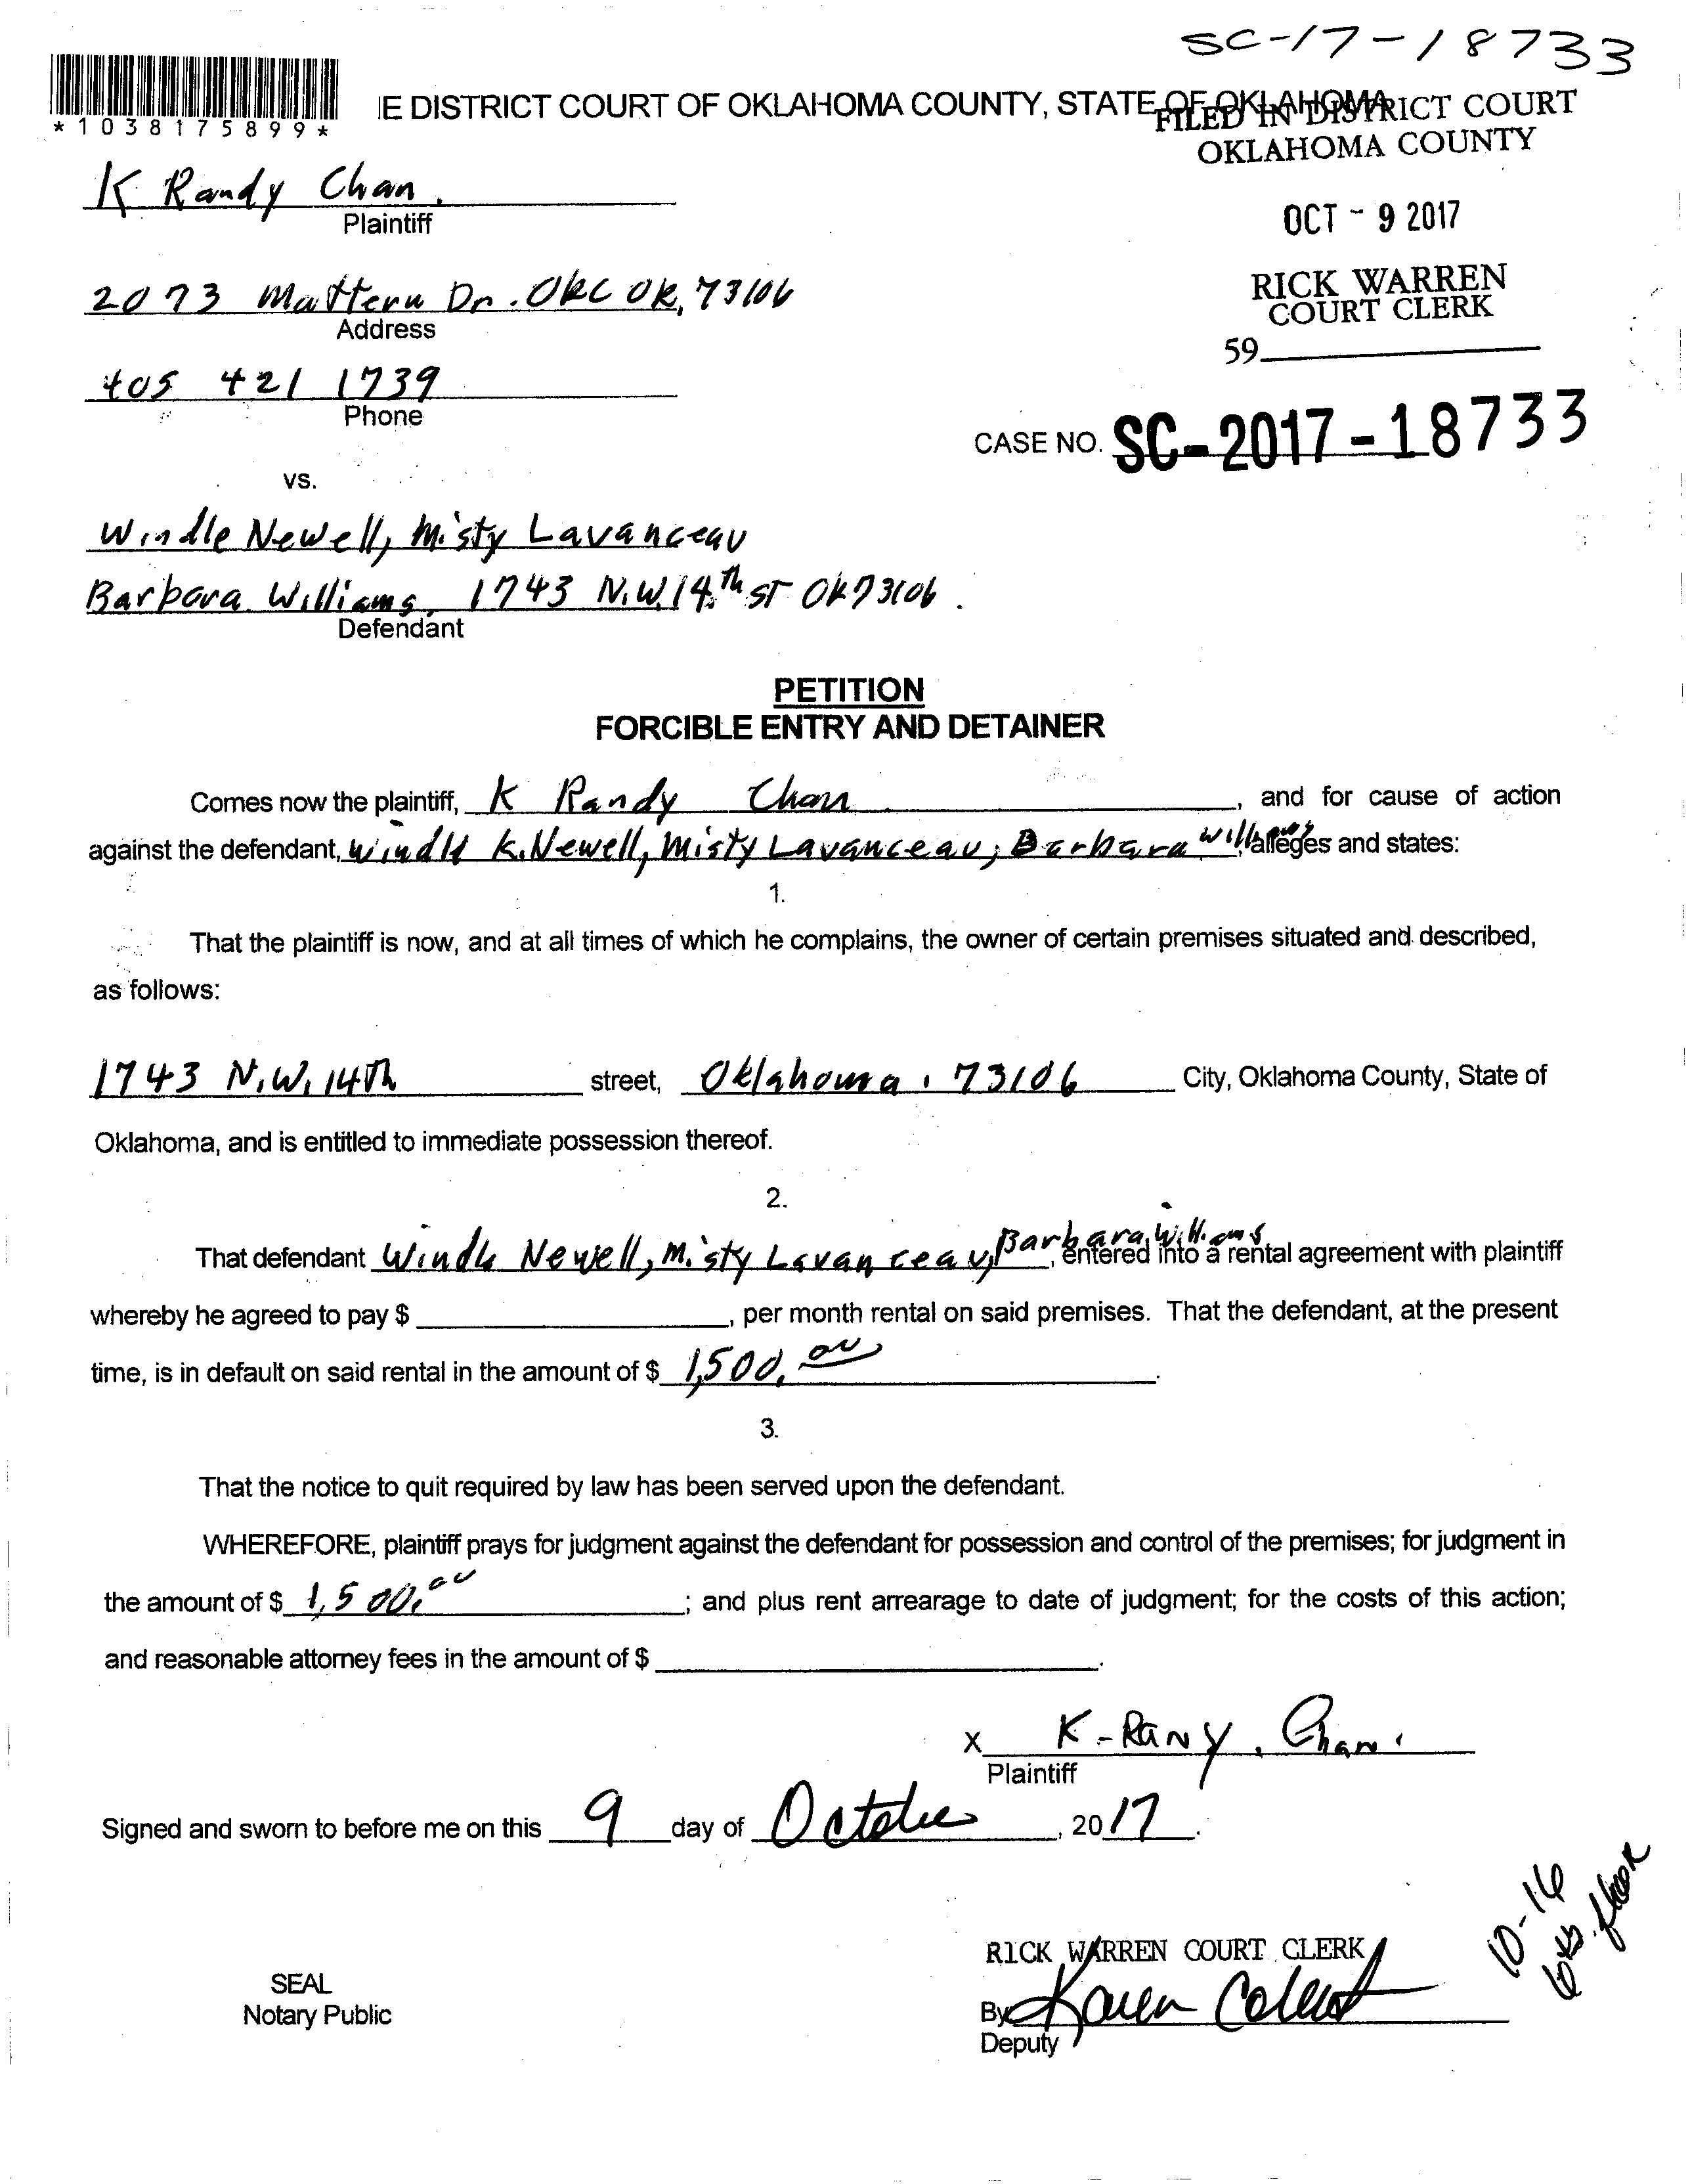 SC-17-18733
*1038175899*
IE DISTRICT COURT OF OKLAHOMA COUNTY, STATE OF OKLAHOMA
FILED IN DISTRICT COURT
OKLAHOMA COUNTY
K Randy Chan.
Plaintiff
OCT - 9 2017
2073 Mattern Dr. OKC OK, 73106
Address
RICK WARREN
COURT CLERK
59
405 421 1739
Phone
CASE NO. SC-2017-18733
vs.
Windle Newell, Misty Lavanceau
Barbara Williams, 1743 N.W. 14th ST OK 73106.
Defendant
PETITION
FORCIBLE ENTRY AND DETAINER
Comes now the plaintiff, K Randy Chan, and for cause of action
against the defendant, Windle K. Newell, Misty Lavanceau, Barbara Williams, alleges and states:
1.
That the plaintiff is now, and at all times of which he complains, the owner of certain premises situated and described,
as follows:
1743 N.W. 14Th street, Oklahoma. 73106 City, Oklahoma County, State of
Oklahoma, and is entitled to immediate possession thereof.
2.
That defendant Windle Newell, Misty Lavanceau, Barbara Williams, entered into a rental agreement with plaintiff
whereby he agreed to pay $ , per month rental on said premises. That the defendant, at the present
time, is in default on said rental in the amount of $ 1,500.00.
3.
That the notice to quit required by law has been served upon the defendant.
WHEREFORE, plaintiff prays for judgment against the defendant for possession and control of the premises; for judgment in
the amount of $ 1,500.00; and plus rent arrearage to date of judgment; for the costs of this action;
and reasonable attorney fees in the amount of $ .
X K-Rany. Chan.
Plaintiff
Signed and sworn to before me on this 9 day of October, 2017.
10-16
floor
RICK WARREN COURT CLERK
SEAL
Notary Public
By Karen
Deputy